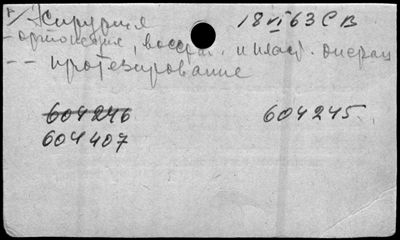 Хирургия 18 VI 63 СВ
- ортопедия, восст. и пласт. операц
- - протезирование
604246 604245
604407